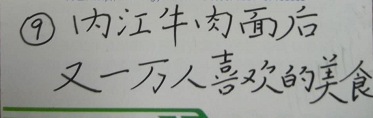 ⑨内江牛肉面后
又一万人喜欢的美食